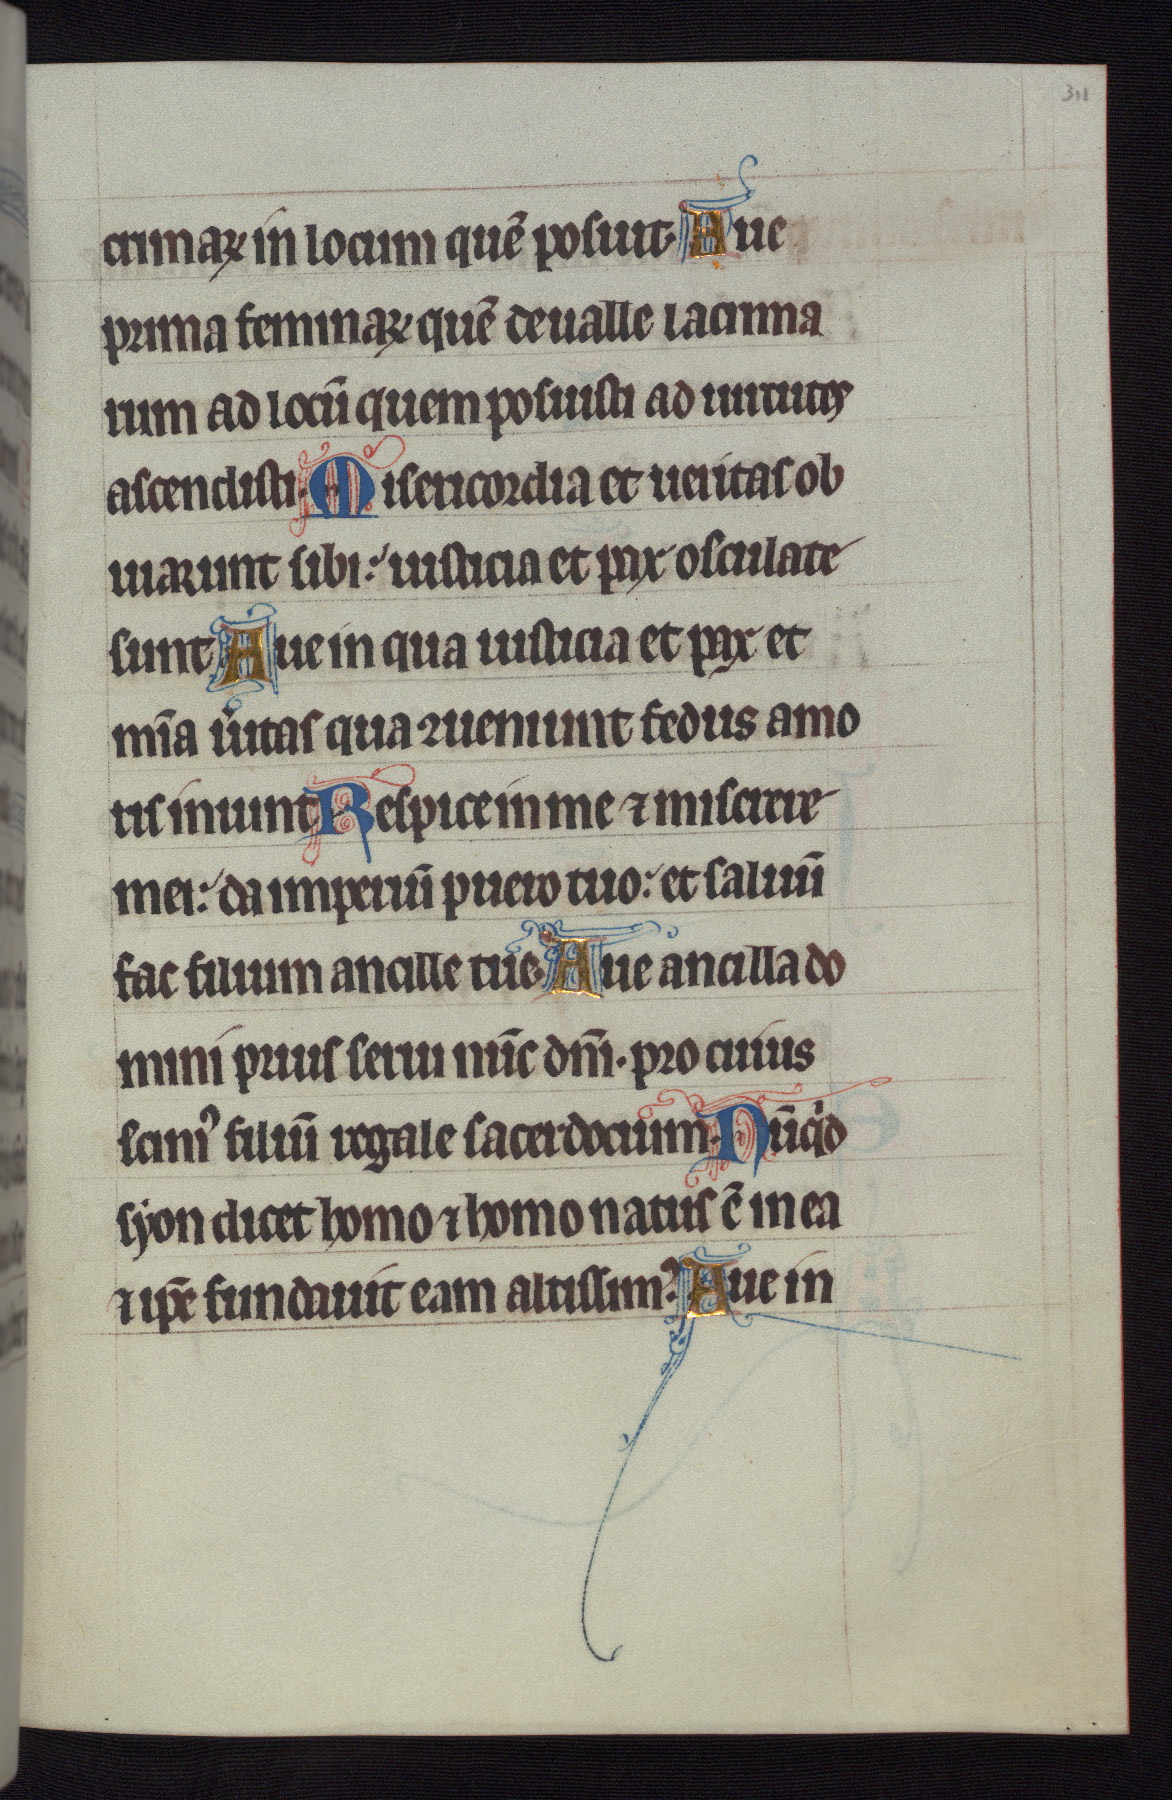 311
crimaꝝ in locum quē posuit. Aue
prima feminaꝝ quē de ualle lacrima
rum ad locū quem posuisti ad uirtutes
ascendisti. Misericordia et ueritas ob
uiarunt sibi: iusticia et pax osculate
sunt Aue in qua iusticia et pax et
mīa ueritas qua ꝯueniunt fedus amo
ris iniunt Respice in me ⁊ miserere
mei: da imperiū puero tuo: et saluū
fac filium ancille tue. Aue ancilla do
mini prius serui nūc dn̄i. pro cuius
scim᷒ filiū regale sacerdocium. Nūqid
syon dicet homo ⁊ homo natus ē in ea
⁊ ip̄e fundauit eam altissim᷒ Aue in